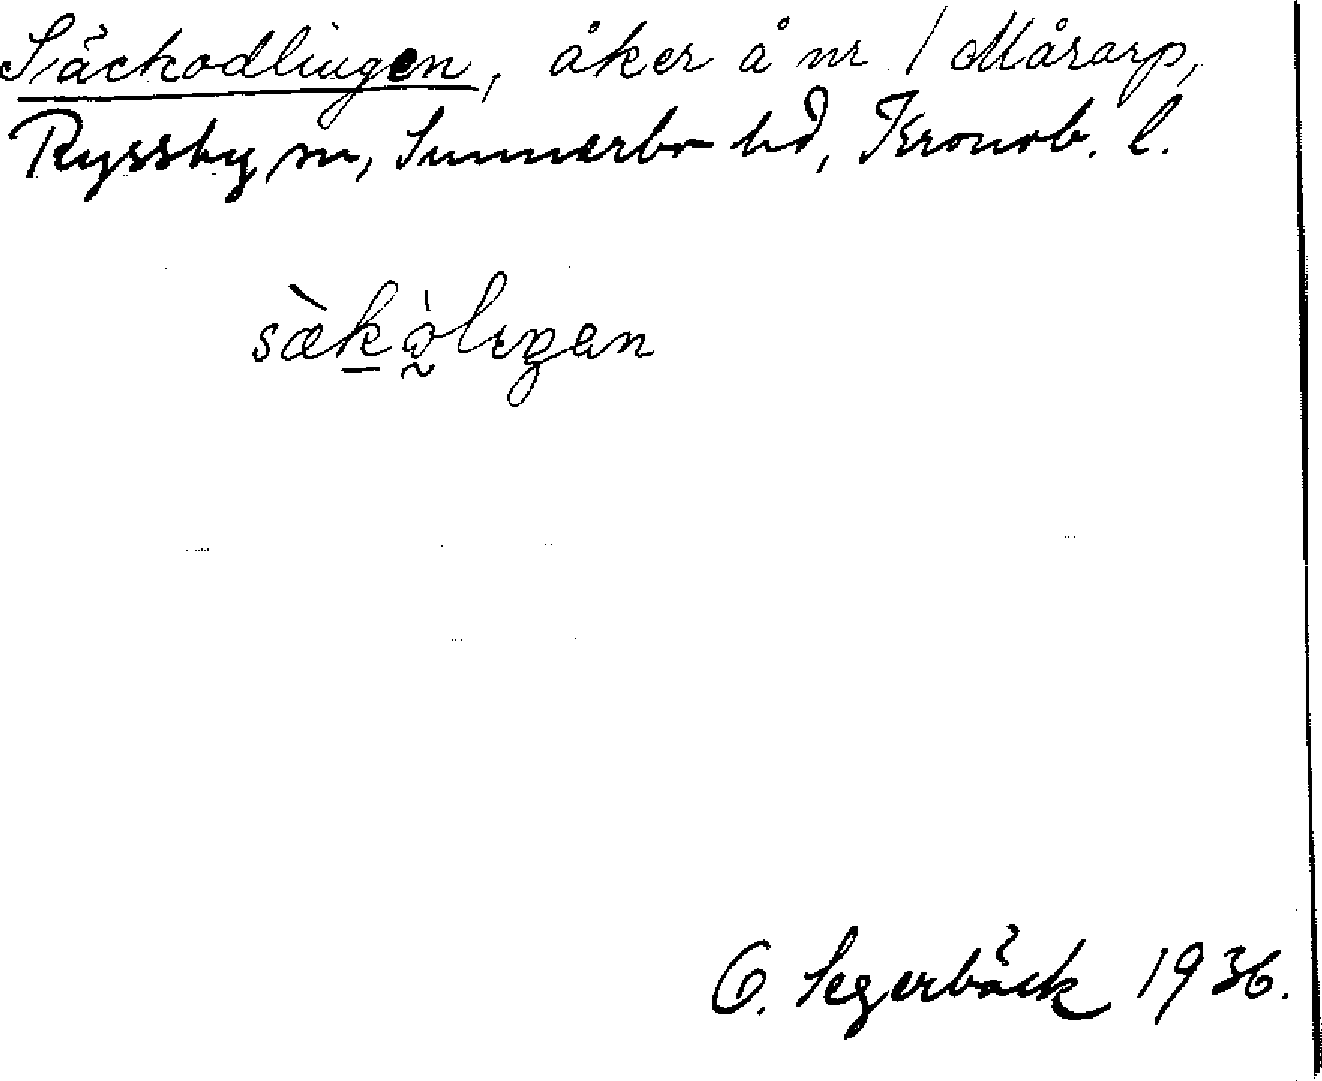 Säckodlingen, åker å nr 1 Mårarp,
Ryssby sn, Sunnerbo hd, Kronob. l.
G. Segerbäck 1936.